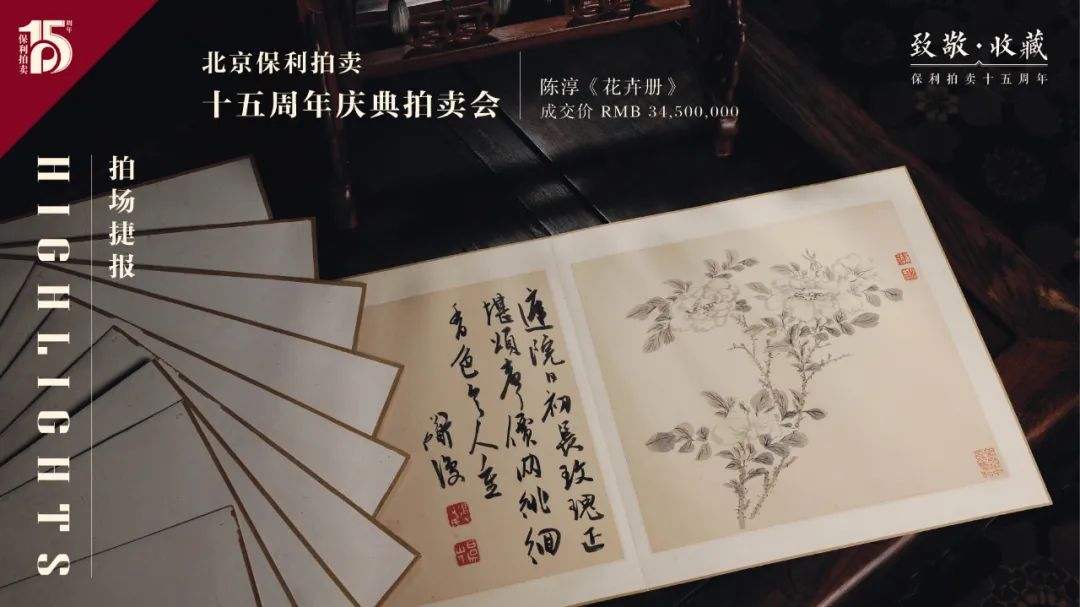 15周年
保利拍卖
北京保利拍卖
十五周年庆典拍卖会
陈淳《花卉册》
成交价 RMB 34,500,000
致敬·收藏
保利拍卖十五周年
HIGHLIGHTS
拍场捷报
庭院日初長玫瑰正
堪
香色人